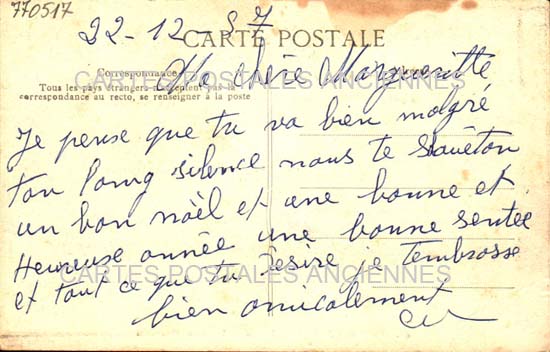 770517
22-12-87
CARTE POSTALE
Ma chère Margueritte
Correspondance
Tous les pays étrangers n'acceptent pas la
correspondance au recto, se renseigner à la poste
Je pense que tu va bien malgré
ton long silence nous te souèton
un bon noël et une bonne et
Heureuse année une bonne sentée
CARTES POSTALES ANCIENNES
et tout ce que tu desire je tembrasse
bien amicalement